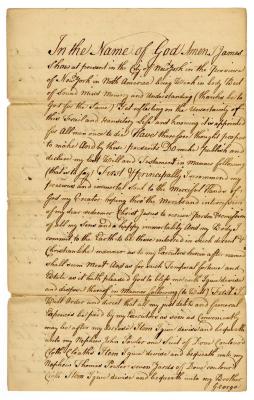 In the Name of God Amen I James
Shaw at present in the City of New York in the province
of New York in North America being Weak in body But
of Sound Mind Memory and Understanding (thanks be to
God for the Same) & reflecting on the Uncertainty of
this Frail and transitory Life and knowing it is appointed
for All men once to die Have therefore thought proper
to make And by these presents Do make publish and
declare my last Will and Testament in manner following
(that is to say) First & principally I recommend my
precious and immortal Soul to the Merciful Hands of
God my Creator hoping thro the Merits and intercession
of my dear redeemer Christ Jesus to receive pardon & remission
of all my Sins and a happy immortality And my Body I
commit to the Earth to be there interred in such decent &
Christianlike manner as to my Executors herein after named
shall seem Meet And as for such Temporal fortune and
Estate as it hath pleased God to bless me with I give devise
and dispose thereof in Manner following to Wit, First I
Will Order and direct that all my just debts and Funeral
Expences be paid by my Executors as soon as Conveniently
may be after my decease Item I give devise and bequeath
unto my Nephew John Parker one Suit of Dove Coulored
Cloth Cloaths Item I give devise and bequeath unto my
Nephew Thomas Parker seven Yards of Dove Coulored
Cloth Item I give devise and bequeath unto my Brother
George